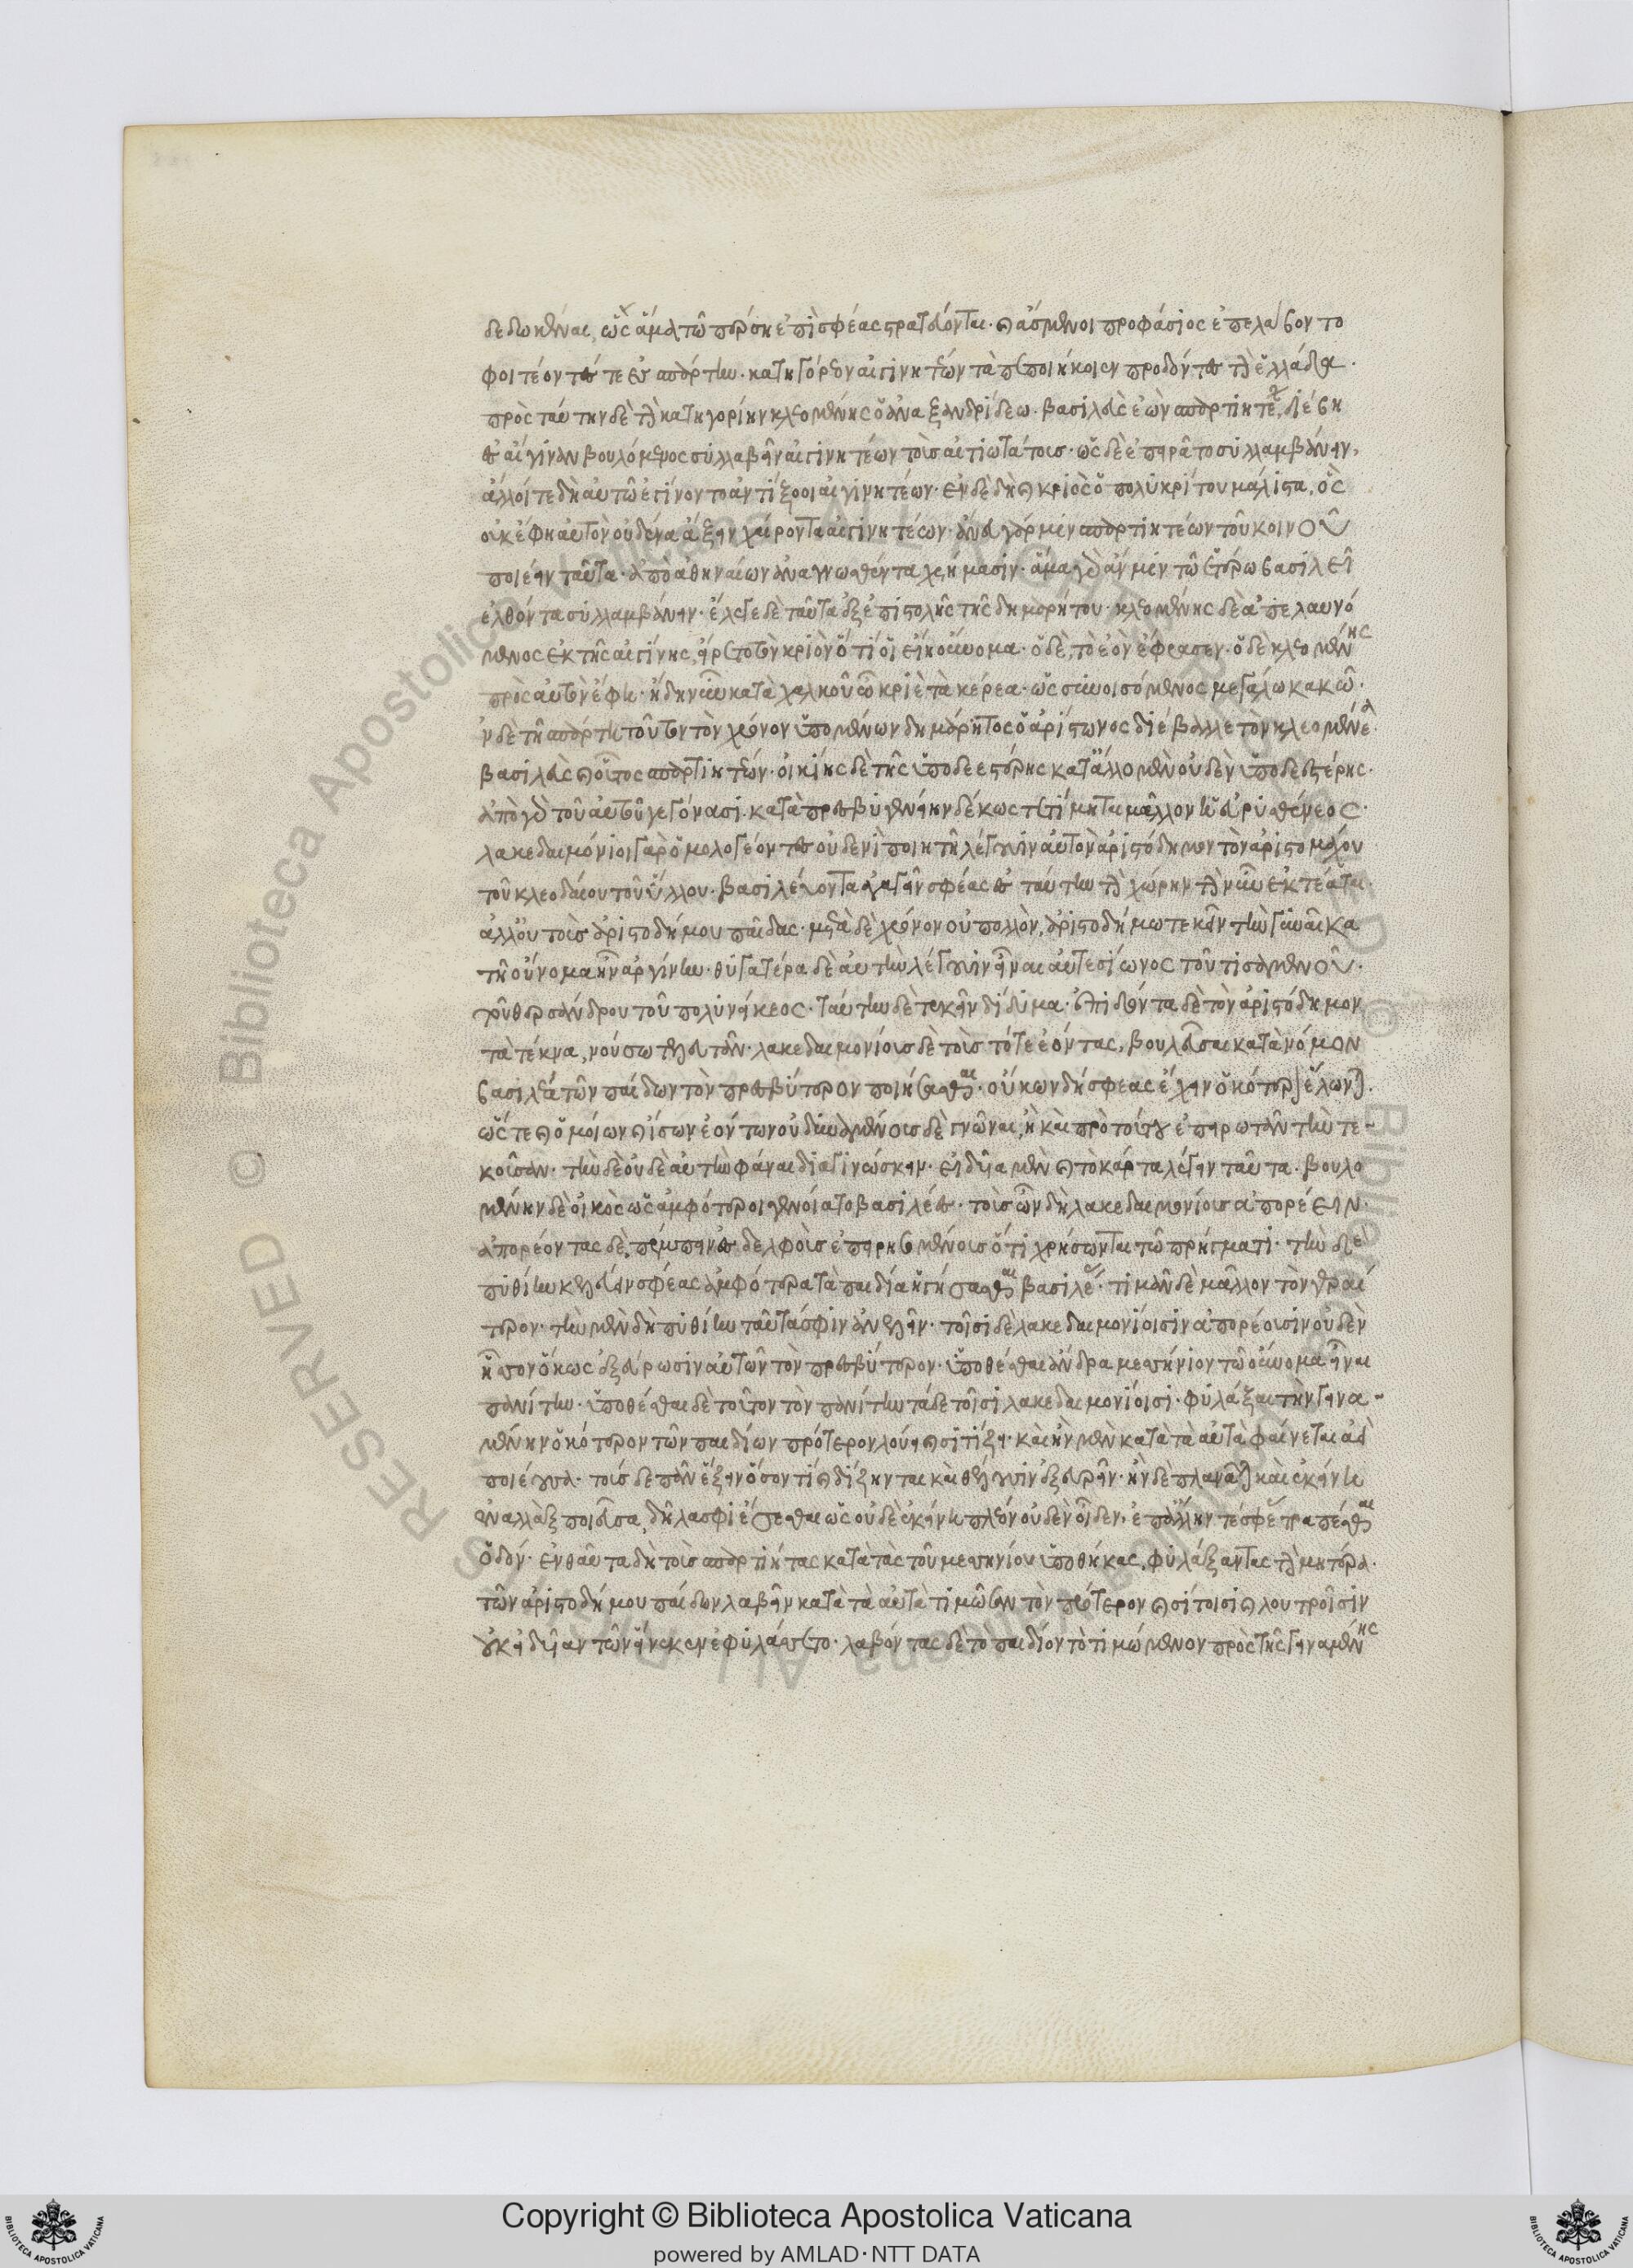 δεδωκέναι, ὡς ἅμα τῶ πέρση ἐπὶ σφέας στρατεύωνται· καὶ ἄσμενοι προφάσιος ἐπελάβοντο
φοιτέοντές τε ἐς σπάρτην· κατηγόρεον αἰγινητέων τὰ πεποιήκοιεν προδόντες τὴν ἑλλάδα·
πρὸς ταύτην δὲ τὴν κατηγορίην κλεομένης ὁ ἀναξανδρίδεω· βασιλεὺς ἐὼν σπαρτιητέων, διέβη
ἐς αἴγιναν βουλόμενος συλλαβεῖν αἰγινητέων τοὺς αἰτιωτάτους· ὡς δὲ ἐπειρᾶτο συλλαμβάνειν,
ἄλλοι τε δὴ αὐτῶ ἐγίνοντο ἀντίξοοι αἰγινητέων· ἐν δὲ δὴ καὶ κριὸς ὁ πολυκρίτου μάλιστα, ὃς
οὐκ ἔφη αὐτὸν οὐδένα ἄξειν χαίροντα αἰγινητέων· ἄνευ γάρ μιν σπαρτιητέων τοῦ κοινοῦ
ποιέειν ταῦτα· ὑπὸ ἀθηναίων ἀναγνωσθέντα χρήμασιν· ἅμα γὰρ ἄν μιν τῶ ἑτέρω βασιλεῖ
ἐλθόντα συλλαμβάνειν· ἔλεγε δὲ ταῦτα ἐξ ἐπιστολῆς τῆς δημαρήτου· κλεομένης δὲ ἀπελαυνό
μενος ἐκ τῆς αἰγίνης, εἴρετο τὸν κριὸν ὅ τι οἱ εἴη οὔνομα· ὁ δὲ, τὸ ἐὸν ἔφρασεν· ὁ δὲ κλεομένης
πρὸς αὐτὸν ἔφη· ἤδη νῦν καταχαλκοῦ ὦ κριὲ τὰ κέρεα· ὡς συνοισόμενος μεγάλω κακῶ·
ἐν δὲ τῆ σπάρτη τοῦτον τὸν χρόνον ὑπομένων δημάρητος ὁ ἀρίστωνος διέβαλλε τὸν κλεομένεα
βασιλεὺς καὶ οὗτος σπαρτιητέων· οἰκίης δὲ τῆς ὑποδεεστέρης κατ' ἄλλο μὲν οὐδὲν ὑποδεεστέρης·
ἀπὸ γὰρ τοῦ αὐτοῦ γεγόνασι. κατὰ πρεσβυγενείην δέ κως τετίμηται μᾶλλον ἡ εὐρυσθένεος·
λακεδαιμόνιοι γὰρ ὁμολογέοντες οὐδενὶ ποιητῆ λέγουσιν αὐτὸν ἀριστόδημον τὸν ἀριστομάχου
τοῦ κλεοδαίου τοῦ ὕλλου· βασιλεύοντα ἀγαγεῖν σφέας ἐς ταύτην τὴν χώρην τὴν νῦν ἐκτέαται·
ἀλλ' οὐ τοὺς ἀριστοδήμου παῖδας· μετὰ δὲ χρόνον οὐ πολλὸν, ἀριστοδήμω τεκεῖν τὴν γυναῖκα
τῆ οὔνομα εἶναι ἀργείην· θυγατέρα δὲ αὐτὴν λέγουσιν εἶναι αὐτεσίωνος τοῦ τισαμενοῦ·
τοῦ θερσάνδρου τοῦ πολυνείκεος· ταύτην δὲ τεκεῖν δίδυμα· ἐπιδόντα δὲ τὸν ἀριστόδημον
τὰ τέκνα, νούσω τελευτᾶν· λακεδαιμονίους δὲ τοὺς τότε ἐόντας, βουλεῦσαι κατὰ νόμον
βασιλέα τῶν παίδων τὸν πρεσβύτερον ποιήσασθαι· οὔκων δή σφεας ἔχειν ὁκότερον ἕλωνται.
ὥστε καὶ ὁμοίων καὶ ἴσων ἐόντων οὐ δυναμένους δὲ γνῶναι, ἢ καὶ πρὸ τούτου ἐπειρωτᾶν τὴν τε-
κοῦσαν· τὴν δὲ οὐδὲ αὐτὴν φάναι διαγινώσκειν· εἰδυῖα μὲν καὶ τὸ κάρτα λέγειν ταῦτα. βουλο
μένην δὲ εἴ κως ἀμφότεροι γενοίατο βασιλέες· τοὺς ὦν δὴ λακεδαιμονίους ἀπορέειν·
ἀπορέοντας δὲ, πέμπειν ἐς δελφοὺς ἐπειρησομένους ὅ τι χρήσωνται τῶ πρήγματι· τὴν δὲ
πυθίην κελεύειν σφέας ἀμφότερα τὰ παιδία ἡγήσασθαι βασιλέας· τιμᾶν δὲ μᾶλλον τὸν γεραί
τερον· τὴν μὲν δὴ πυθίην ταῦτά σφιν ἀνελεῖν· τοῖσι δὲ λακεδαιμονίοισιν ἀπορέουσιν οὐδὲν
ἧσσον ὅκως ἐξεύρωσιν αὐτῶν τὸν πρεσβύτερον· ὑποθέσθαι ἄνδρα μεσσήνιον τῶ οὔνομα εἶναι
πανίτην· ὑποθέσθαι δὲ τοῦτον τὸν πανίτην τάδε τοῖσι λακεδαιμονίοισι· φυλάξαι τὴν γεινα-
μένην ὁκότερον τῶν παιδίων πρότερον λούει καὶ σιτίζει· καὶ ἢν μὲν κατὰ τὰ αὐτὰ φαίνεται αἰεὶ
ποιέουσα· τοὺς δὲ πᾶν ἕξειν ὅσον τι καὶ δίζηνται καὶ θέλουσιν ἐξευρεῖν· ἢν δὲ πλανᾶται καὶ ἐκείνη
ἐναλλὰξ ποιεῦσα, δῆλά σφι ἔσεσθαι ὡς οὐδὲ ἐκείνη πλέον οὐδὲν οἶδεν, ἐπ' ἄλλην τέ σφεας τραπέσθαι
ὁδόν· ἐνθαῦτα δὴ τοὺς σπαρτιήτας κατὰ τὰς τοῦ μεσσηνίου ὑποθήκας, φυλάξαντας τὴν μητέρα·
τῶν ἀριστοδήμου παίδων λαβεῖν κατὰ τὰ αὐτὰ τιμῶσαν τὸν πρότερον καὶ σίτοισι καὶ λουτροῖσιν
οὐκ εἰδυῖαν τῶν εἵνεκεν ἐφυλάσσετο· λαβόντας δὲ τὸ παιδίον τὸ τιμώμενον πρὸς τῆς γειναμένης
Copyright © Biblioteca Apostolica Vaticana
powered by AMLAD·NTT DATA